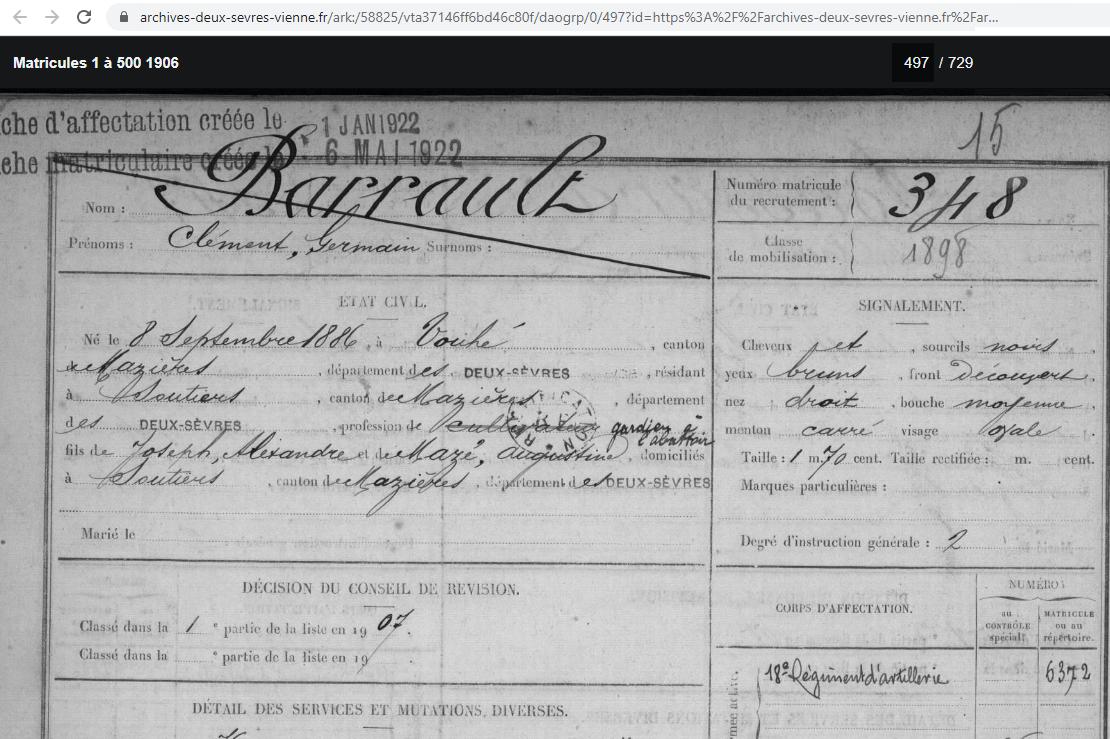 archives-deux-sevres-vienne.fr/ark:/58825/vta37146ff6bd46c80f/daogrp/0/497?id=https%3A%2F%2Farchives-deux-sevres-vienne.fr%2Far...
Matricules 1 à 500 1906
497 / 729
che d'affectation créée le 1 JAN 1922
che matriculaire créée le 6 MAI 1922
15
Nom : Barrault
Prénoms : Clément, Germain Surnoms :
Numéro matricule
du recrutement : 348
Classe
de mobilisation : 1898
ETAT CIVIL.
Né le 8 Septembre 1886, à Vouhé, canton
de Mazières, département des DEUX-SÈVRES, résidant
à Soutiers, canton de Mazières, département
des DEUX-SÈVRES, profession de cultivateur gardien à
l'abattoir
fils de Joseph, Alexandre et de Mazé, Augustine, domiciliés
à Soutiers, canton de Mazières, département des DEUX-SÈVRES
Marié le
SIGNALEMENT.
Cheveux et, sourcils noirs,
yeux bruns, front découvert,
nez droit, bouche moyenne
menton carré visage ovale
Taille : 1 m 70 cent. Taille rectifiée : m. cent.
Marques particulières :
Degré d'instruction générale : 2
DÉCISION DU CONSEIL DE REVISION.
Classé dans la 1 e partie de la liste en 1907.
Classé dans la e partie de la liste en 19
DÉTAIL DES SERVICES ET MUTATIONS DIVERSES.
CORPS D'AFFECTATION.
NUMÉROS
au
CONTRÔLE
spécial.
MATRICULE
ou au
répertoire.
18e Régiment d'artillerie 6372